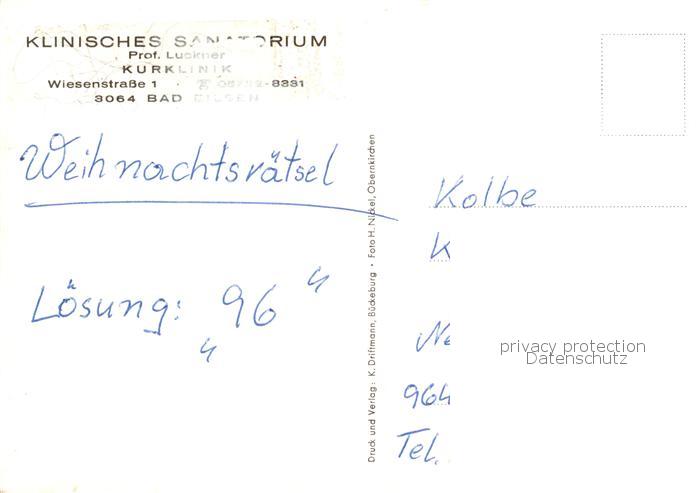 KLINISCHES SANATORIUM
Prof. Luckner
KURKLINIK
Wiesenstraße 1 · ☎ 05722-8331
3064 BAD EILSEN
Weihnachtsrätsel
Lösung: "96"
Druck und Verlag: K. Driftmann, Bückeburg • Foto H. Nickel, Obernkirchen
Kolbe
K
Ne
964
Tel.
privacy protection
Datenschutz